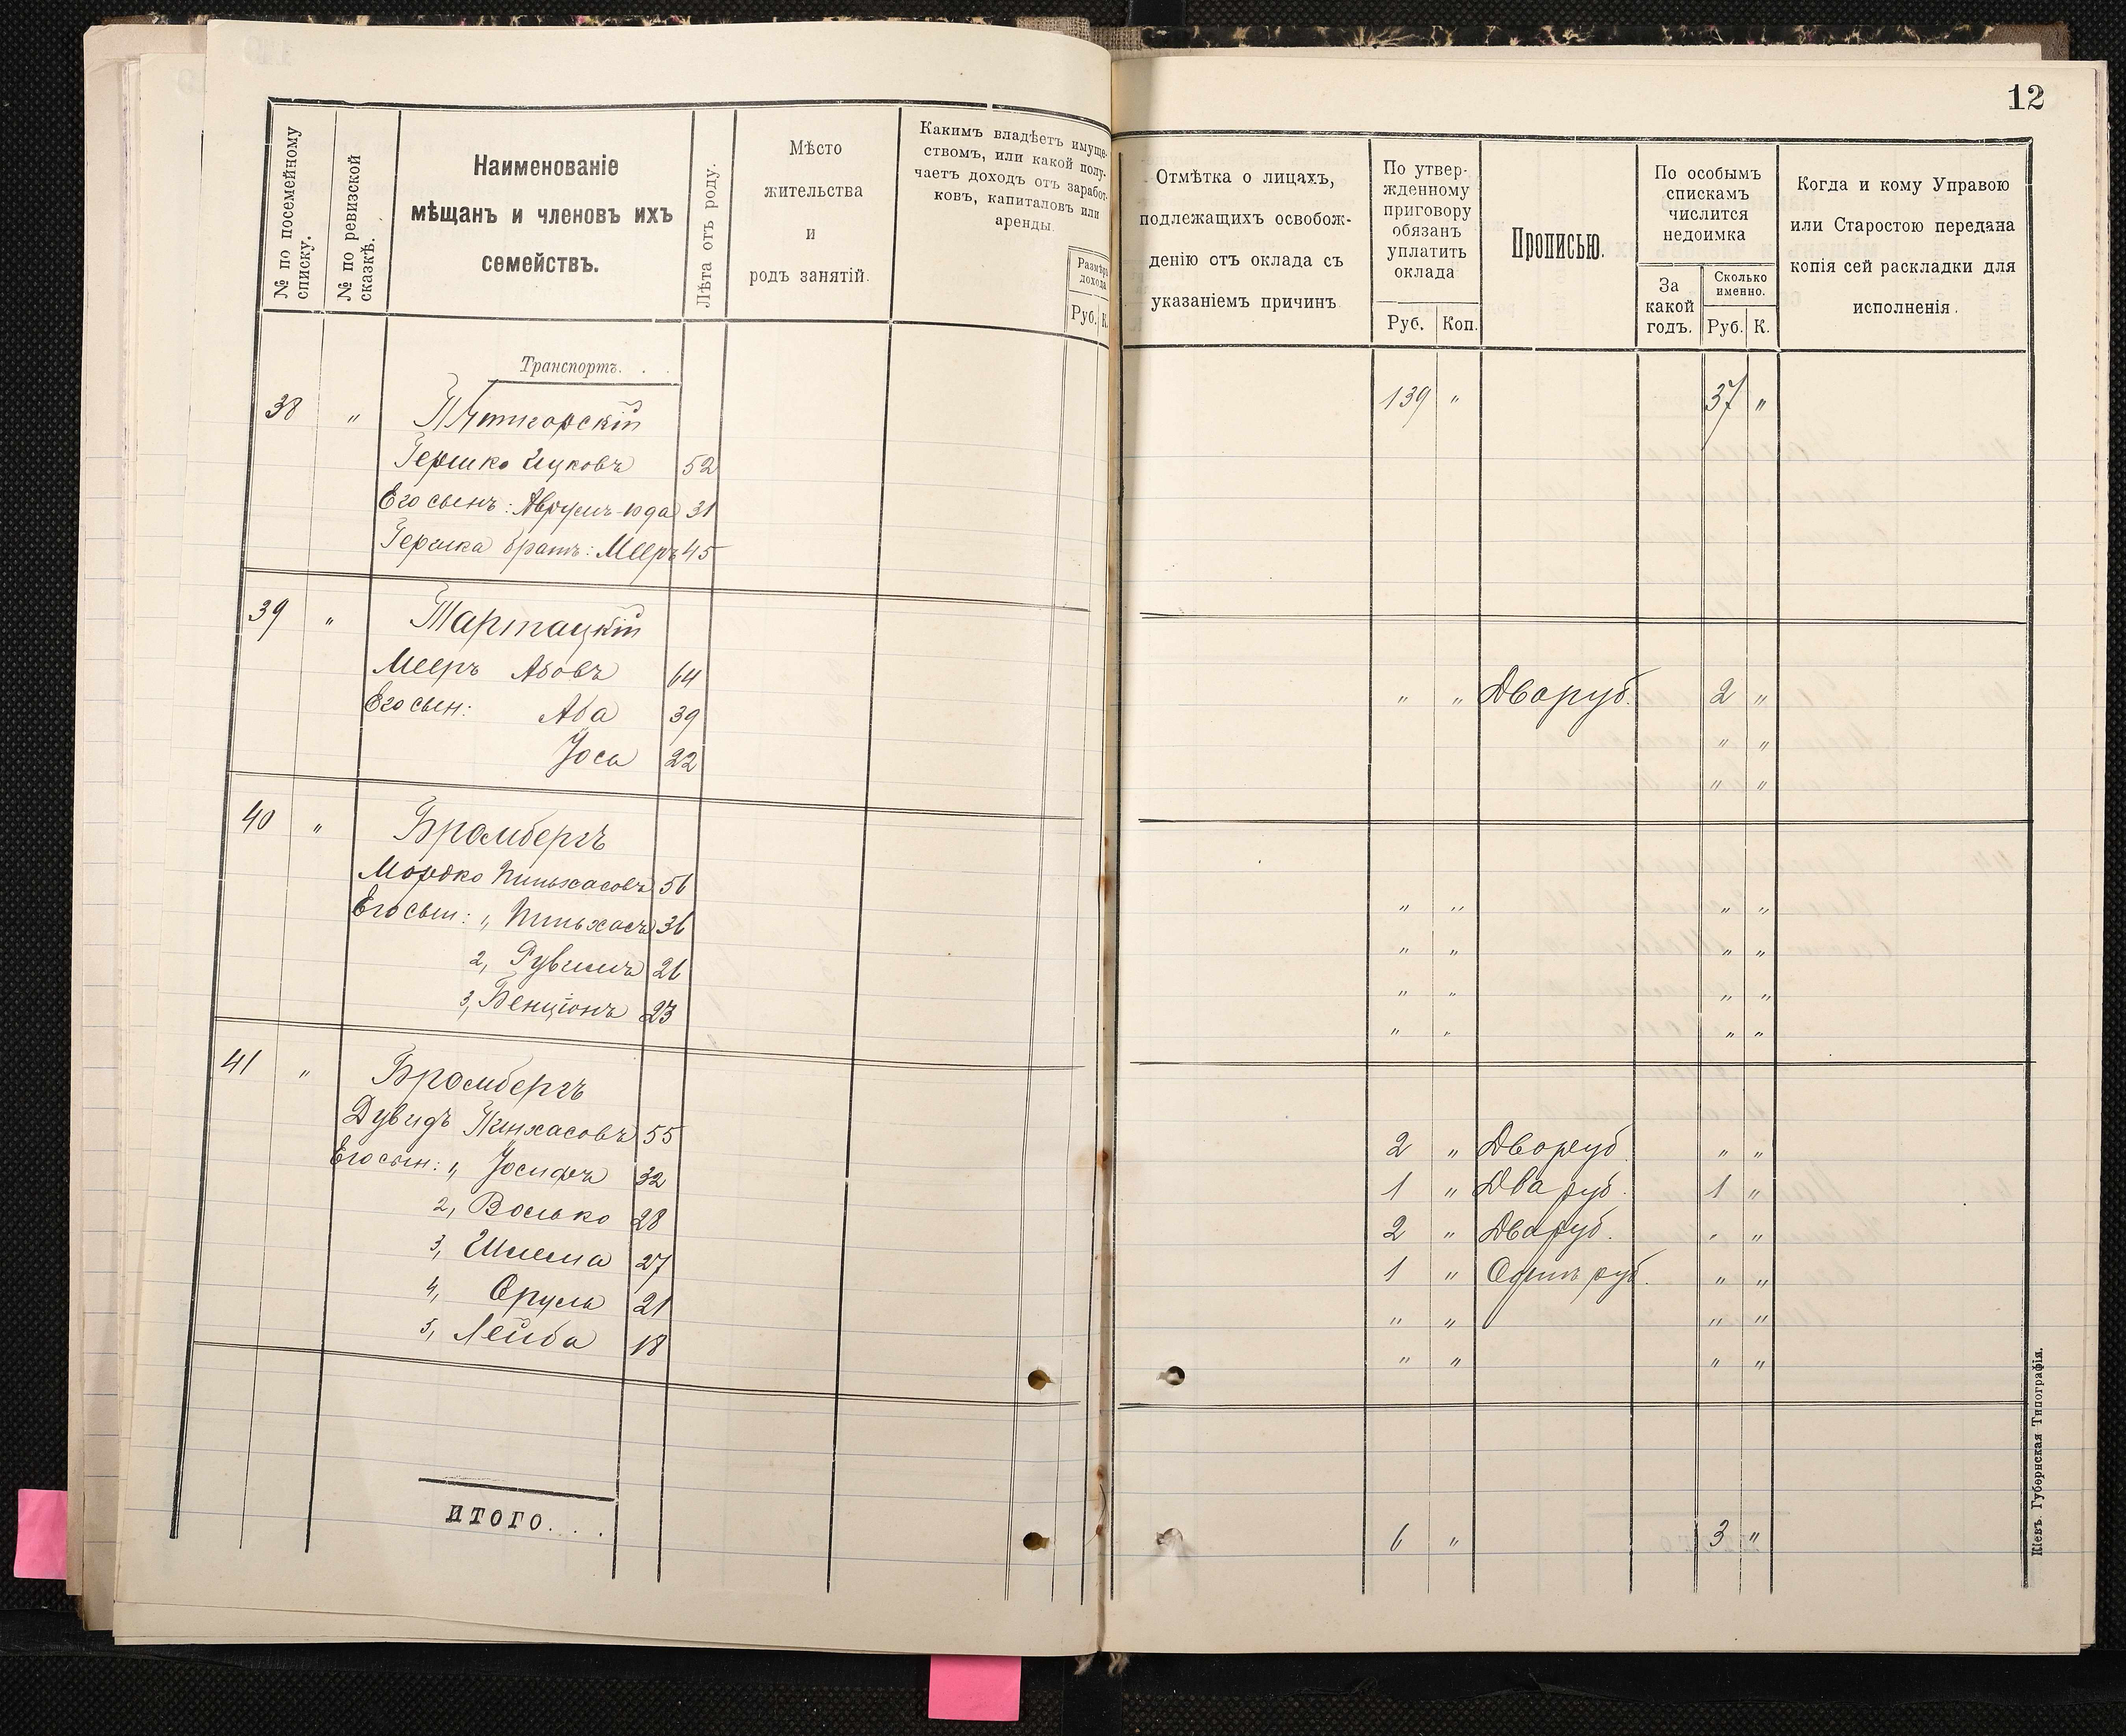 12
№ по посемейному списку.
№ по ревизской сказкѣ.
Наименованіе
мѣщанъ и членовъ ихъ
семействъ.
Лѣта отъ роду.
Мѣсто
жительства
и
родъ занятій.
Какимъ владѣетъ имуще-
ствомъ, или какой полу-
чаетъ доходъ отъ заработ-
ковъ, капиталовъ или
аренды.
Размѣръ
дохода
Руб. К.
Отмѣтка о лицахъ,
подлежащихъ освобож-
денію отъ оклада съ
указаніемъ причинъ
По утвер-
жденному
приговору
обязанъ
уплатить
оклада
Руб. Коп.
Прописью.
По особымъ
спискамъ
числится
недоимка
За
какой
годъ.
Сколько
именно.
Руб. К.
Когда и кому Управою
или Старостою передана
копія сей раскладки для
исполненія.
Транспортъ. . .
139 " 37 "
38 " Пятигорскій
Гершко Ицковъ 52
Его сынъ: Аврумъ-Юда 31
Гершка братъ: Мееръ 45
39 " Тартацкій
Мееръ Абовъ 64 " " Два руб. 2 "
Его сын: Аба 39 " "
Іоса 22 " "
40 " Бромбергъ
Мордко Пиньхасовъ 56 " " " "
Его сын: 1, Пиньхасъ 36 " " " "
2, Рувимъ 26 " " " "
3, Бенціонъ 23 " " " "
41 " Бромбергъ
Дувидъ Пинхасовъ 55 2 " Два руб " "
Его сын: 1, Іосифъ 32 1 " Два руб. 1 "
2, Волько 28 2 " Два руб. " "
3, Шлема 27 1 " Одинъ руб. " "
4, Сруль 21 " " " "
5, Лейба 18 " " " "
ИТОГО. . . .
6 " 3 "
Кіевъ. Губернская Типографія.